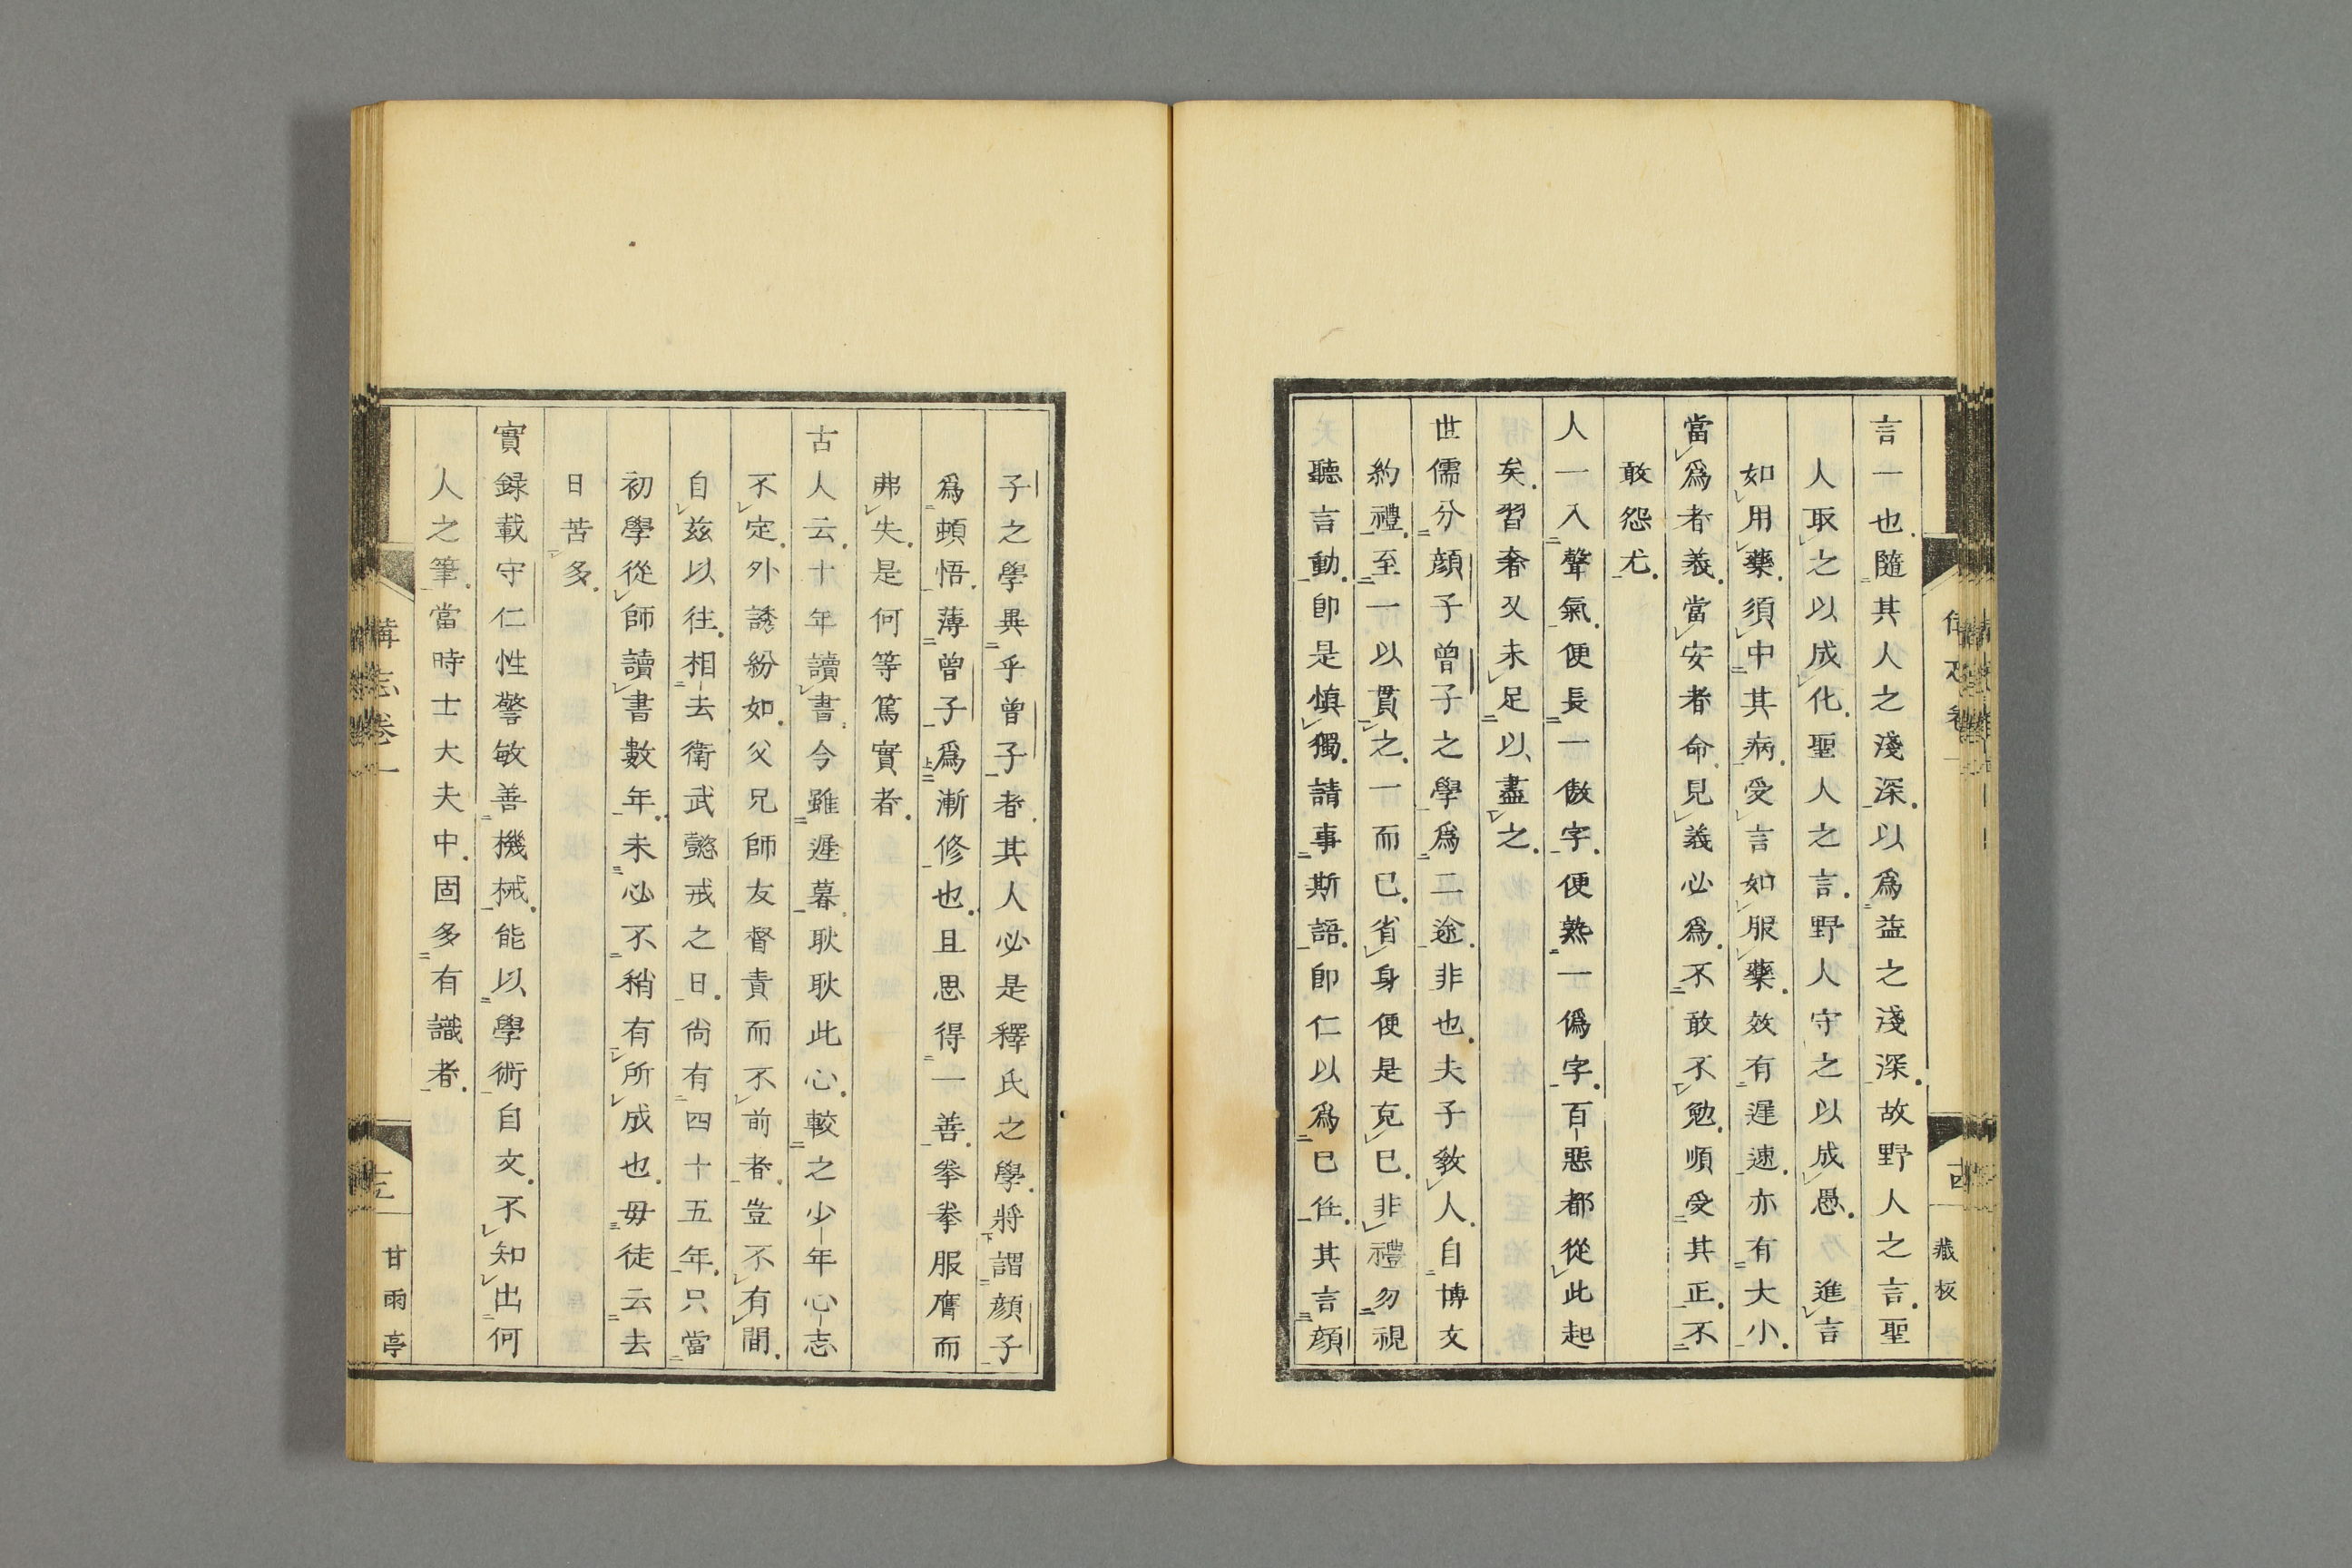 言一也隨其人之淺深以爲益之淺深故野人之言聖
人取之以成化聖人之言野人守之以成愚乃進言
如用藥須中其病受言如服藥效有遲速亦有大小
當爲者義當安者命見義必爲不敢不勉順受其正不
敢怨尤
人一入聲氣便長一傲字便熟一僞字百惡都從此起
矣習奢又未足以盡之
世儒分顔子曾子之學爲二途非也夫子教人自博文
約禮至一以貫之一而已省身便是克已非禮勿視
聽言動卽是愼獨請事斯語卽仁以爲已任其言顔
藏板
子之學異乎曾子者其人必是釋氏之學將謂顔子
爲頓悟薄曾子爲漸修也且思得一善拳拳服膺而
弗失是何等篤實者
古人云十年讀書今雖遲暮耿耿此心較之少年心志
不定外誘紛如父兄師友督責而不前者豈不有間
自茲以往相去衛武懿戒之日尙有四十五年只當
初學從師讀書數年未必不稍有所成也毋徒云去
日苦多
實録載守仁性警敏善機械能以學術自文不知出何
人之筆當時士大夫中固多有識者
講志卷一
甘雨亭